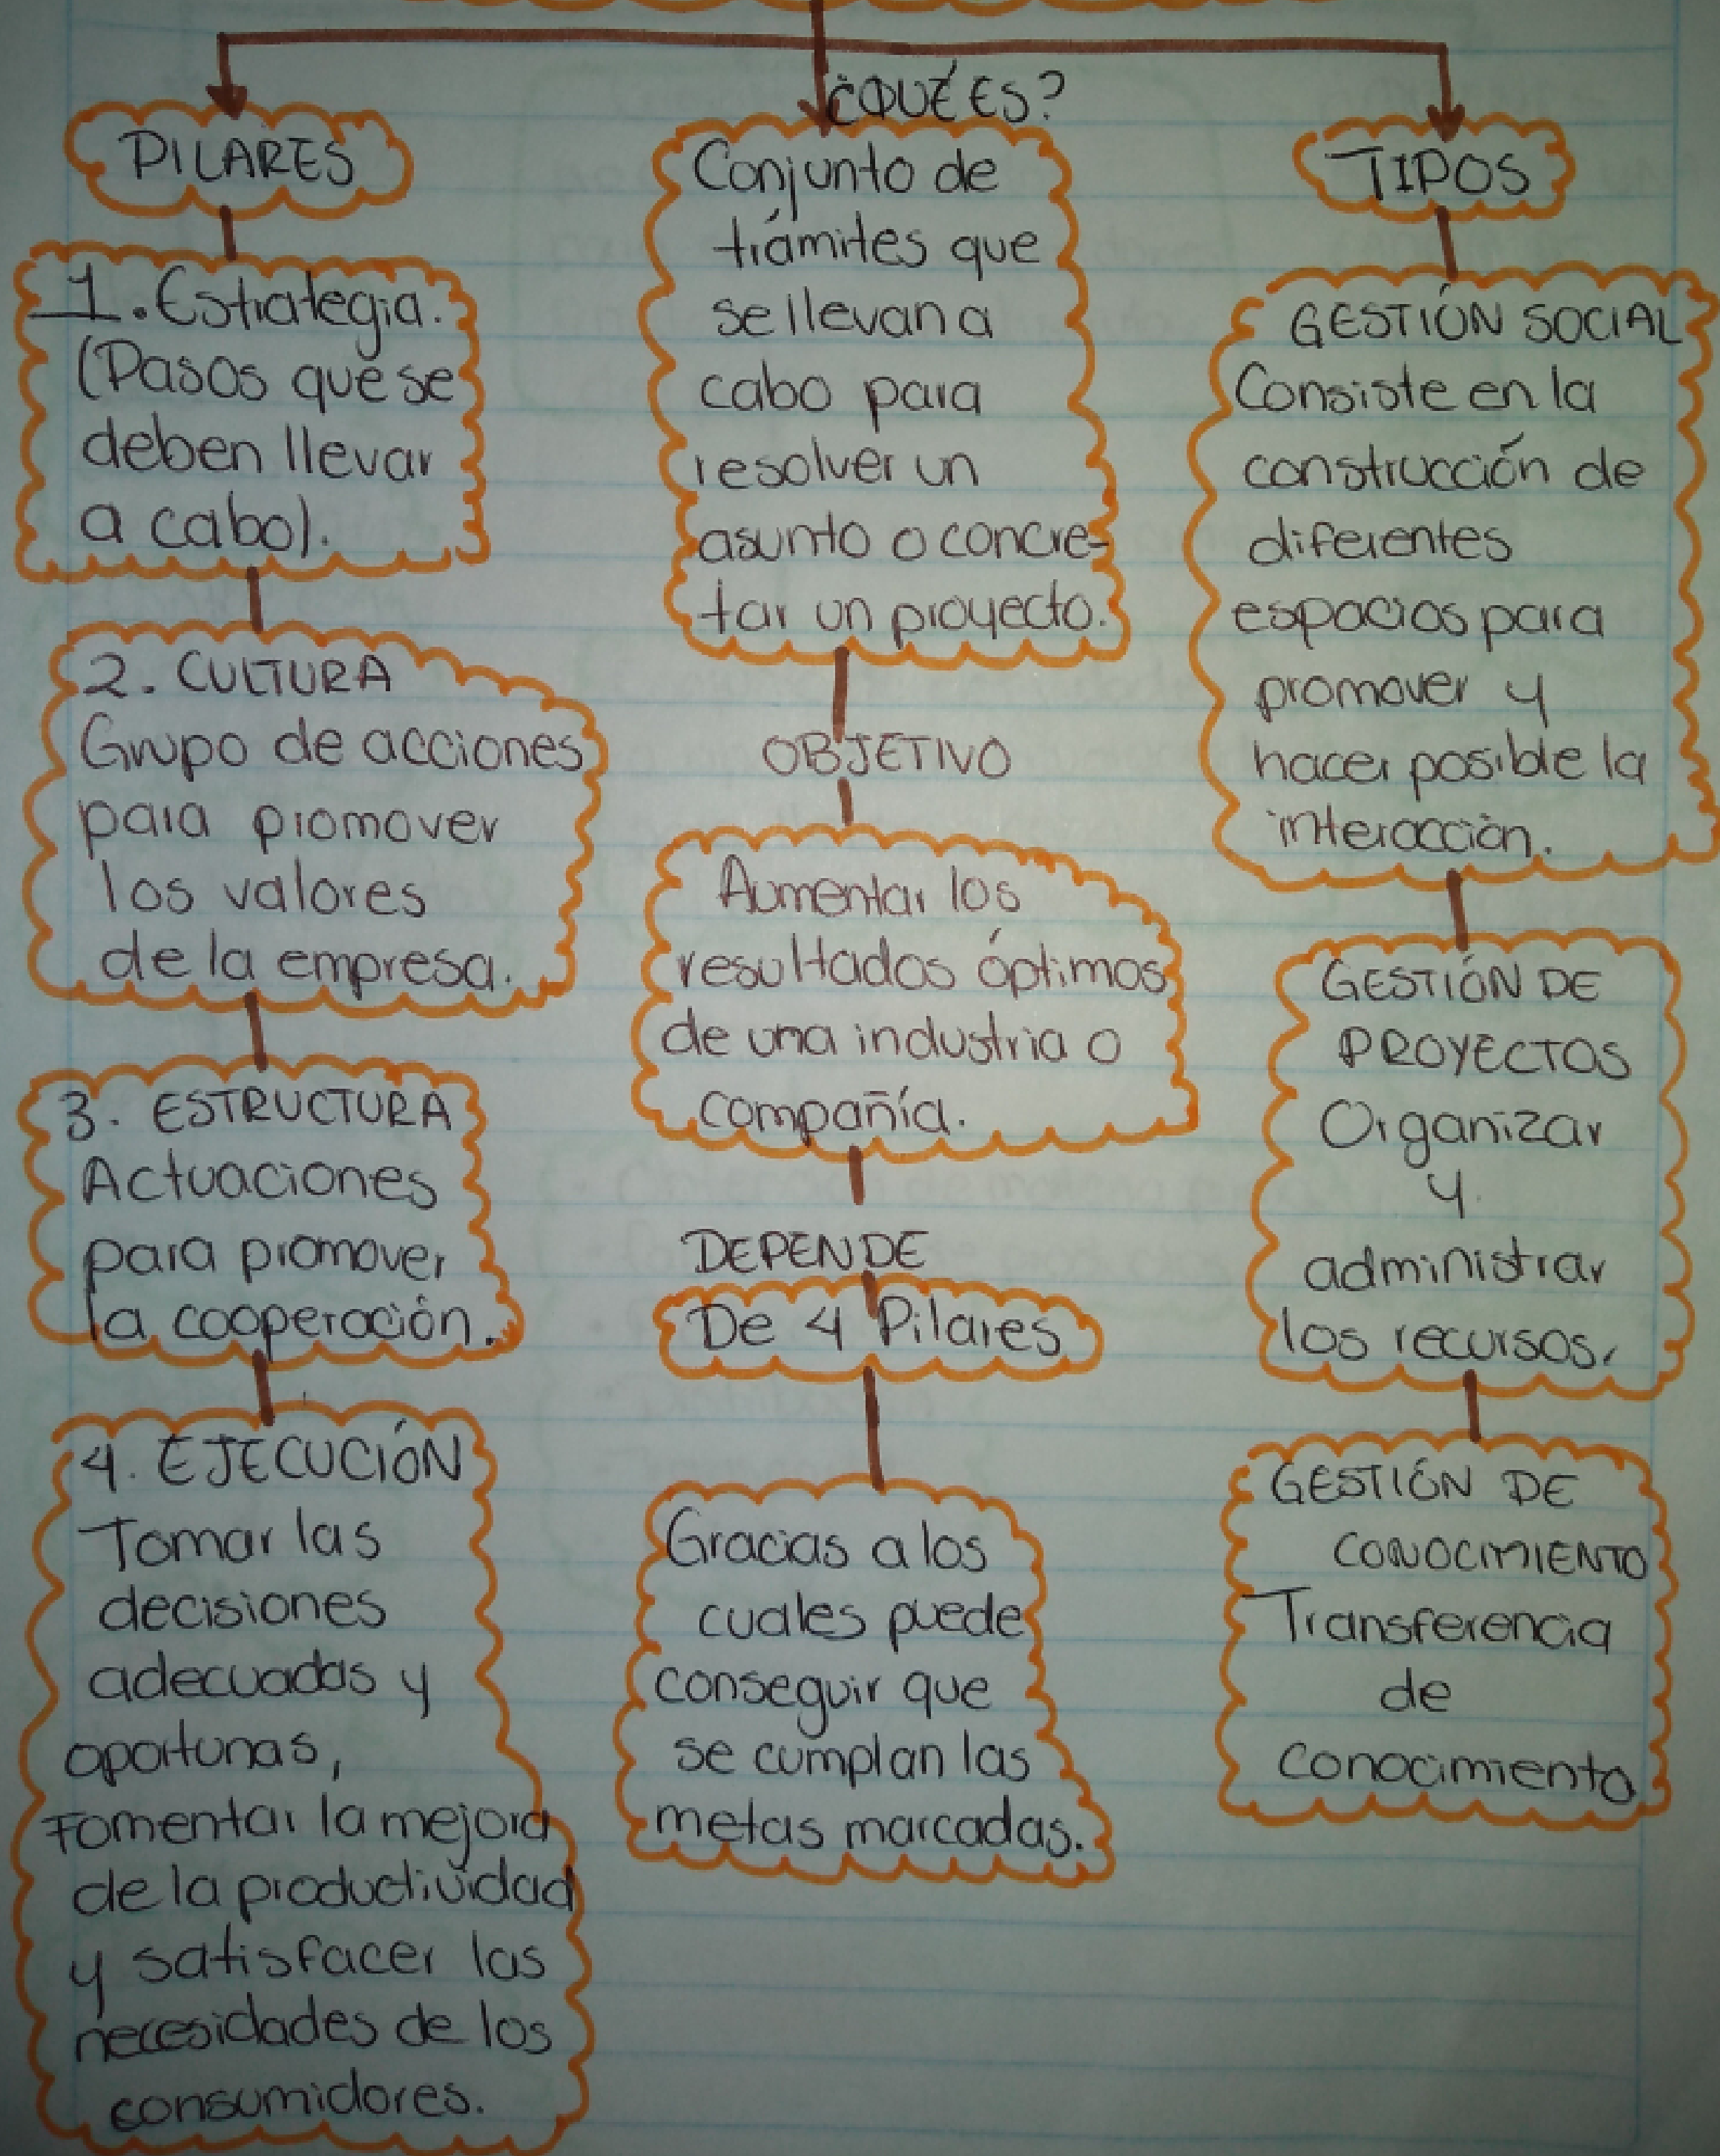 PILARES
1. Estrategia.
(Pasos que se
deben llevar
a cabo).
2. CULTURA
Grupo de acciones
para promover
los valores
de la empresa.
3. ESTRUCTURA
Actuaciones
para promover
la cooperación.
4. EJECUCIÓN
Tomar las
decisiones
adecuadas y
oportunas,
Fomentar la mejora
de la productividad
y satisfacer las
necesidades de los
consumidores.
¿QUÉ ES?
Conjunto de
trámites que
se llevan a
cabo para
resolver un
asunto o concre-
tar un proyecto.
OBJETIVO
Aumentar los
resultados óptimos
de una industria o
compañía.
DEPENDE
De 4 Pilares
Gracias a los
cuales puede
conseguir que
se cumplan las
metas marcadas.
TIPOS
GESTIÓN SOCIAL
Consiste en la
construcción de
diferentes
espacios para
promover y
hacer posible la
interacción.
GESTIÓN DE
PROYECTOS
Organizar
y
administrar
los recursos.
GESTIÓN DE
CONOCIMIENTO
Transferencia
de
conocimiento